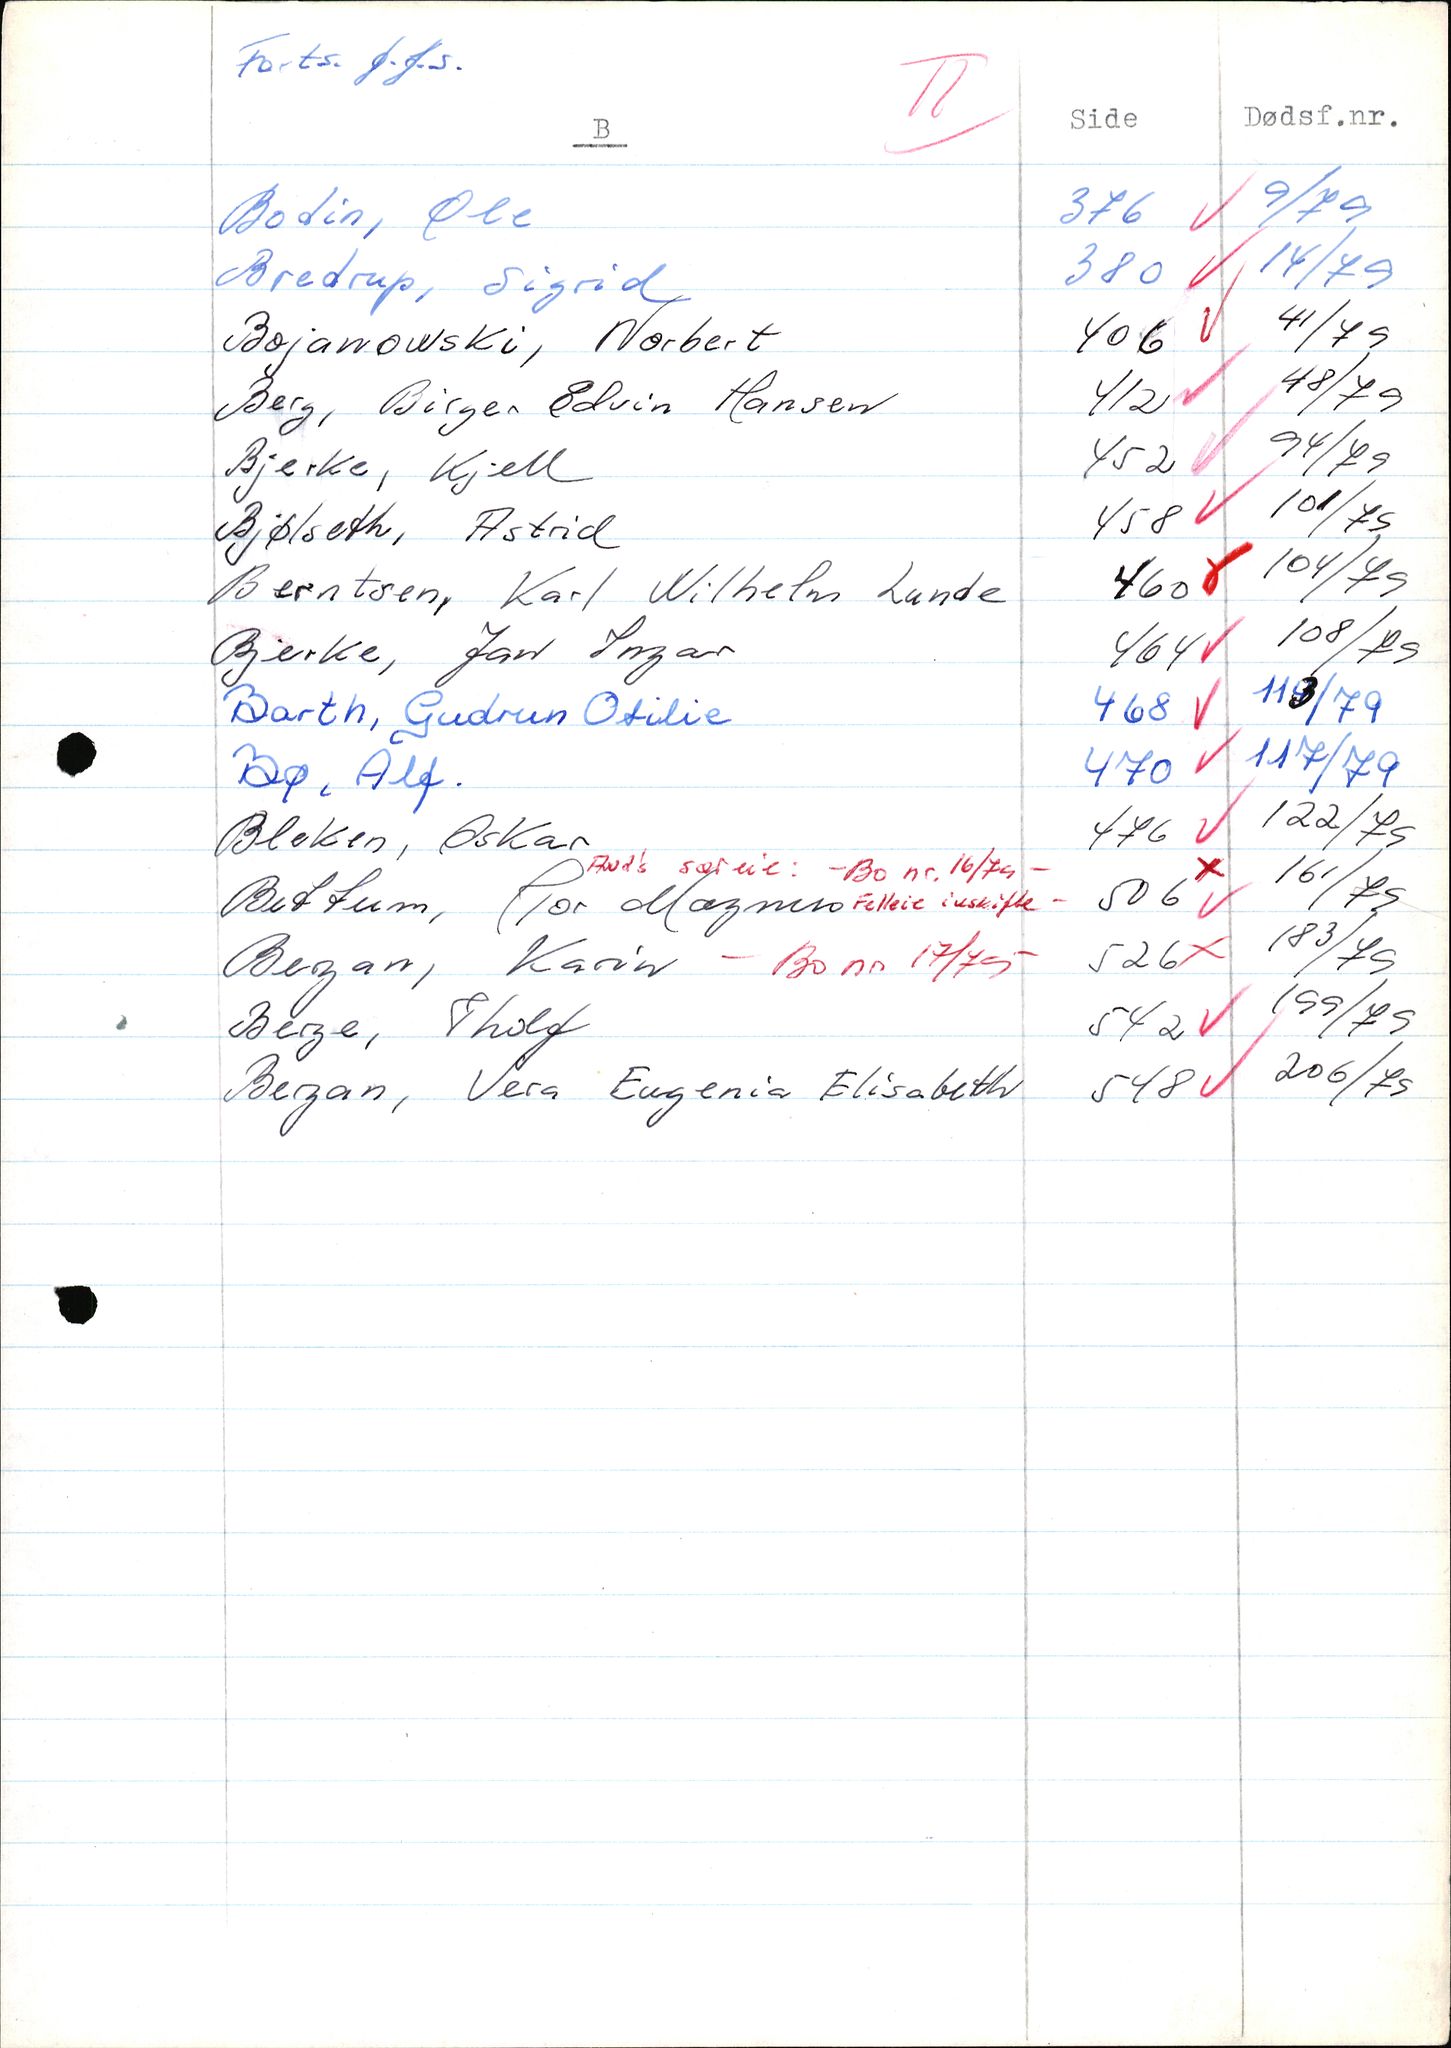 Forts. f.f.s.
II
B Side Dødsf.nr.
Bodin, Ole 376 ✓ 9/79
Bredrup, Sigrid 380 ✓ 14/79
Bojanowski, Norbert 406 ✓ 41/79
Berg, Birger Edvin Hansen 412 ✓ 48/79
Bjerke, Kjell 452 ✓ 94/79
Bjølseth, Astrid 458 ✓ 101/79
Berntsen, Karl Wilhelm Lunde 460 104/79
Bjerke, Jan Ingar 464 ✓ 108/79
Barth, Gudrun Otilie 468 ✓ 113/79
Bø, Alf. 470 ✓ 117/79
Bleken, Oskar 476 ✓ 122/79
særeie: - Bo nr. 16/79 - x
Bettum, Tor Magnus Felleie uskifte - 506 ✓ 161/79
Bergan, Karin - Bo nr 17/79 - 526 x 183/79
Berge, Tholf 542 ✓ 199/79
Bergan, Vera Eugenia Elisabeth 548 ✓ 206/79